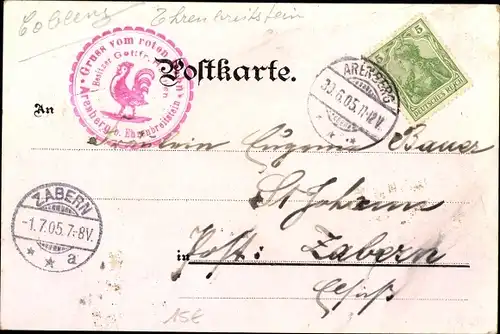 Coblenz Ehrenbreitstein
Gruss vom roten
Besitzer Gottfr.
Arenberg b. Ehrenbreitstein
Postkarte.
5
DEUTSCHES REICH
ARENBERG
30.6.05.11-12V.
An Fräulein Eugenie Bauer
St Johann
in Post: Zabern
Elsaß
ZABERN
-1.7.05.7-8V.
* * a
15€